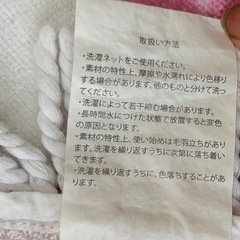 取扱い方法
・洗濯ネットをご使用ください。
・素材の特性上、摩擦や水濡れにより色移り
する場合があります。他のものと分けて洗っ
てください。
・洗濯によって若干縮む場合があります。
・長時間水につけた状態で放置すると変色
の原因となります。
・素材の特性上、使い始めは毛羽立ちがあり
ますが、洗濯を繰り返すうちに次第に落ち着い
てきます。
・洗濯を繰り返すうちに、色落ちすることがあ
ります。